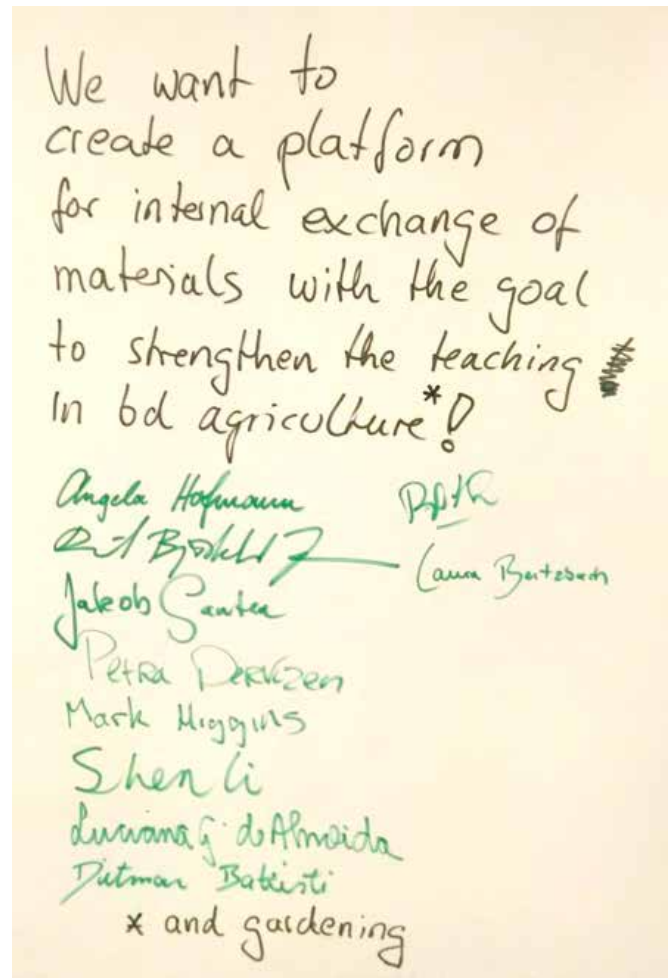 We want to
create a platform
for internal exchange of
materials with the goal
to strengthen the teaching
In bd agriculture*!
Angela Hofmann
Laura
Jakob
Petra Dervizen
Mark Higgins
Shen Li
Luciana G. de Almeida
Dietmar Battisti
* and gardening